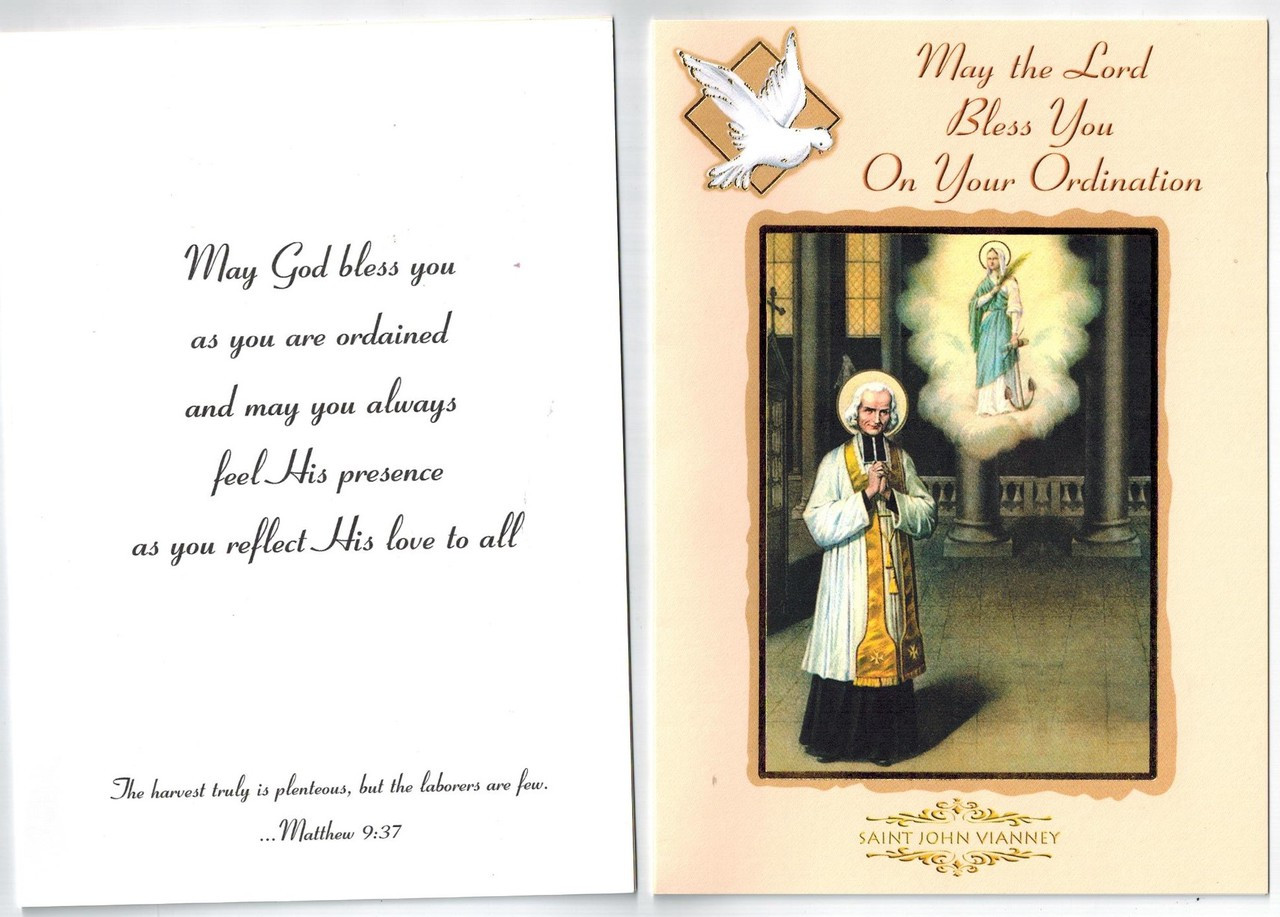 May God bless you
as you are ordained
and may you always
feel His presence
as you reflect His love to all
The harvest truly is plenteous, but the laborers are few.
...Matthew 9:37
May the Lord
Bless You
On Your Ordination
SAINT JOHN VIANNEY